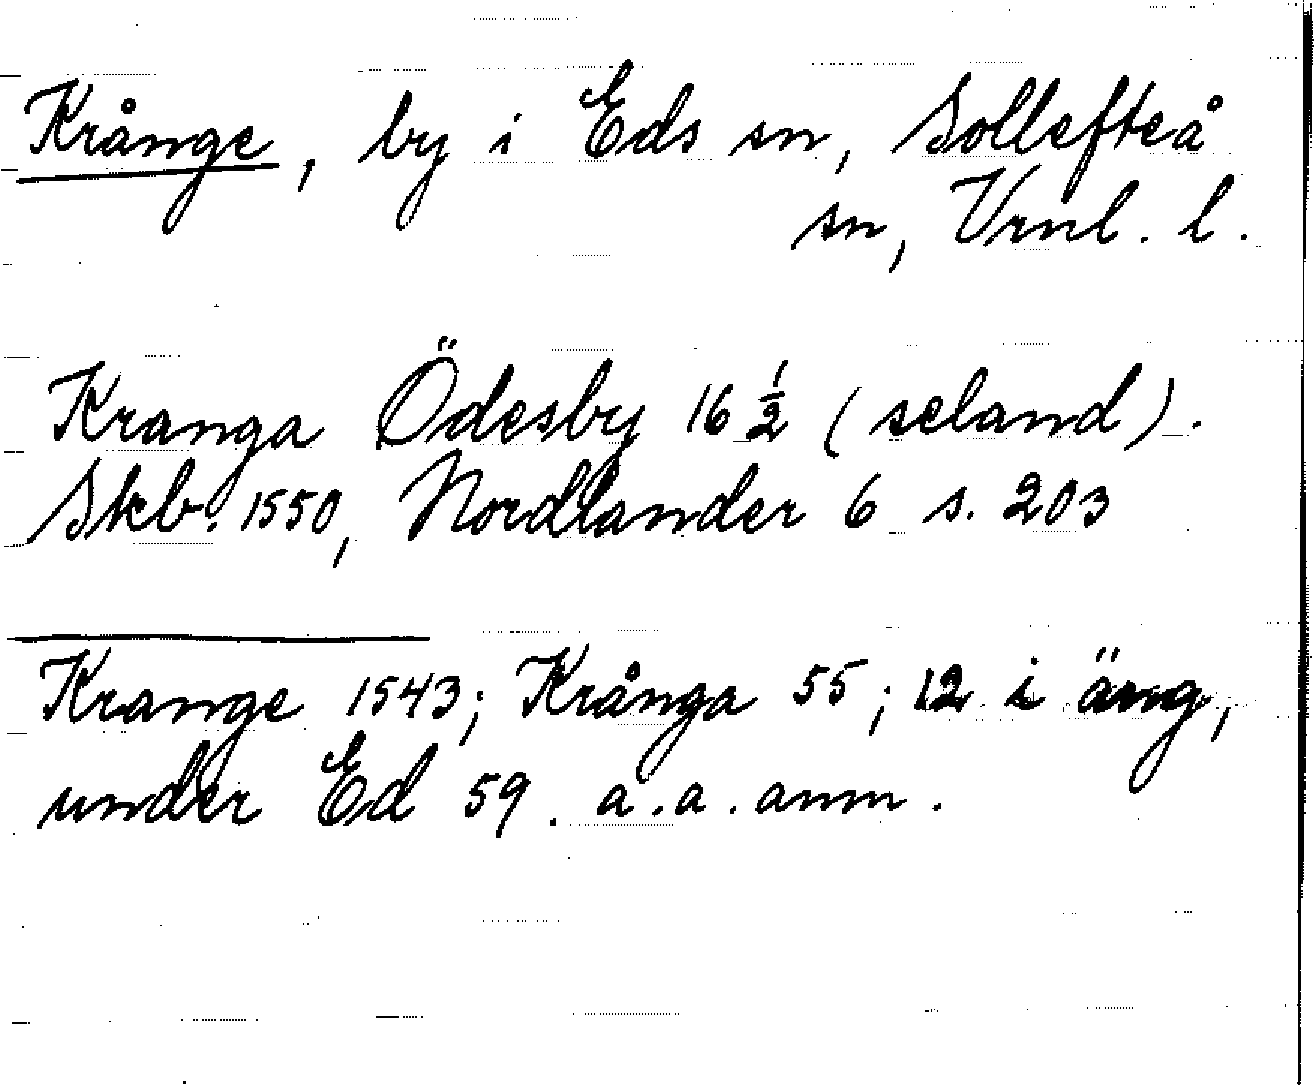 Krånge, by i Eds sn, Sollefteå
sn, Vrnl. l.
Kranga Ödesby 16 1/2 (seland).
Skb. 1550, Nordlander 6 s. 203
Krange 1543; Krånga 55; 12 i äng,
under Ed 59. a.a. anm.